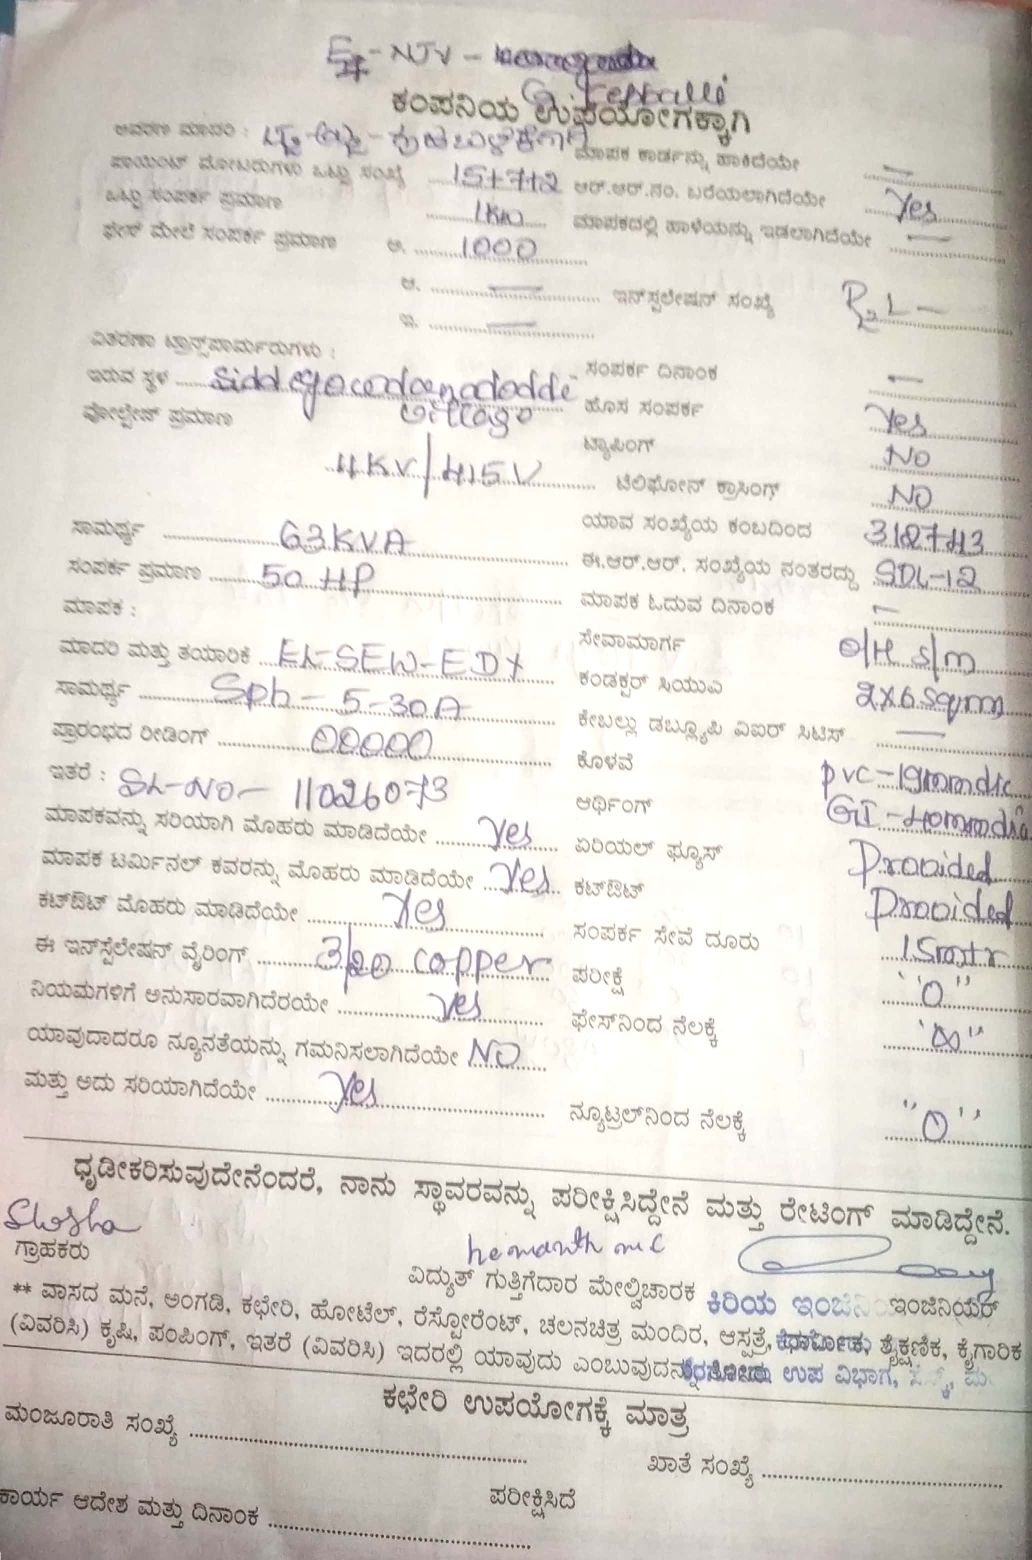 NJY -
ಕಂಪನಿಯ ಉಪಯೋಗಕ್ಕಾಗಿ
ಆವರಣ ಮಾದರಿ :
ಮಾಪಕ ಕಾರ್ಡನ್ನು ಹಾಕಿದೆಯೇ —
ಪಾಯಿಂಟ್ ಮೋಟರುಗಳು ಒಟ್ಟು ಸಂಖ್ಯೆ
ಆರ್.ಆರ್.ನಂ. ಬರೆಯಲಾಗಿದೆಯೇ Yes
ಒಟ್ಟು ಸಂಪರ್ಕ ಪ್ರಮಾಣ 1KW
ಮಾಪಕದಲ್ಲಿ ಹಾಳೆಯನ್ನು ಇಡಲಾಗಿದೆಯೇ —
ಫೇಸ್ ಮೇಲೆ ಸಂಪರ್ಕ ಪ್ರಮಾಣ ಅ. 1000
ಆ. — ಇನ್‌ಸ್ಟಲೇಷನ್ ಸಂಖ್ಯೆ
ಇ. —
ವಿತರಣಾ ಟ್ರಾನ್ಸ್‌ಪಾರ್ಮರುಗಳು :
ಇರುವ ಸ್ಥಳ
ಸಂಪರ್ಕ ದಿನಾಂಕ —
village
ವೋಲ್ಟೇಜ್ ಪ್ರಮಾಣ ಹೊಸ ಸಂಪರ್ಕ Yes
ಟ್ಯಾಪಿಂಗ್ NO
11KV/415V ಟೆಲಿಫೋನ್ ಕ್ರಾಸಿಂಗ್ NO
ಸಾಮರ್ಥ್ಯ 63KVA ಯಾವ ಸಂಖ್ಯೆಯ ಕಂಬದಿಂದ
ಸಂಪರ್ಕ ಪ್ರಮಾಣ 50 HP ಈ.ಆರ್.ಆರ್. ಸಂಖ್ಯೆಯ ನಂತರದ್ದು SDL-12
ಮಾಪಕ : ಮಾಪಕ ಓದುವ ದಿನಾಂಕ —
ಮಾದರಿ ಮತ್ತು ತಯಾರಿಕೆ ಸೇವಾಮಾರ್ಗ O/H s/m
ಸಾಮರ್ಥ್ಯ Sph - 5-30A ಕಂಡಕ್ಟರ್ ಸಿಯುಎ 2X6sqmm
ಪ್ರಾರಂಭದ ರೀಡಿಂಗ್ 00000 ಕೇಬಲ್ಲು ಡಬ್ಲ್ಯೂಪಿ ಏಐರ್ ಸಿಟಿಸ್ —
ಇತರೆ : SL-NO- 11026073 ಕೊಳವೆ pvc-19mmdic
ಆರ್ಥಿಂಗ್ GI-40mmdia
ಮಾಪಕವನ್ನು ಸರಿಯಾಗಿ ಮೊಹರು ಮಾಡಿದೆಯೇ Yes ಏರಿಯಲ್ ಫ್ಯೂಸ್ Provided
ಮಾಪಕ ಟರ್ಮಿನಲ್ ಕವರನ್ನು ಮೊಹರು ಮಾಡಿದೆಯೇ Yes ಕಟ್‌ಔಟ್ Provided
ಕಟ್‌ಔಟ್ ಮೊಹರು ಮಾಡಿದೆಯೇ Yes ಸಂಪರ್ಕ ಸೇವೆ ದೂರು 15mtr
ಈ ಇನ್‌ಸ್ಟೆಲೇಷನ್ ವೈರಿಂಗ್ 3/20 copper ಪರೀಕ್ಷೆ "0"
ನಿಯಮಗಳಿಗೆ ಅನುಸಾರವಾಗಿದೆರಯೇ yes ಫೇಸ್‌ನಿಂದ ನೆಲಕ್ಕೆ "∞"
ಯಾವುದಾದರೂ ನ್ಯೂನತೆಯನ್ನು ಗಮನಿಸಲಾಗಿದೆಯೇ NO
ಮತ್ತು ಅದು ಸರಿಯಾಗಿದೆಯೇ Yes ನ್ಯೂಟ್ರಲ್‌ನಿಂದ ನೆಲಕ್ಕೆ "0"
ಧೃಡೀಕರಿಸುವುದೇನೆಂದರೆ, ನಾನು ಸ್ಥಾವರವನ್ನು ಪರೀಕ್ಷಿಸಿದ್ದೇನೆ ಮತ್ತು ರೇಟಿಂಗ್ ಮಾಡಿದ್ದೇನೆ.
hemanth m c
ಗ್ರಾಹಕರು ವಿದ್ಯುತ್ ಗುತ್ತಿಗೆದಾರ ಮೇಲ್ವಿಚಾರಕ ಕಿರಿಯ ಇಂಜಿನಿಯರ್
** ವಾಸದ ಮನೆ, ಅಂಗಡಿ, ಕಛೇರಿ, ಹೋಟೆಲ್, ರೆಸ್ಟೋರೆಂಟ್, ಚಲನಚಿತ್ರ ಮಂದಿರ, ಆಸ್ಪತ್ರೆ, ಶೈಕ್ಷಣಿಕ, ಕೈಗಾರಿಕ
(ವಿವರಿಸಿ) ಕೃಷಿ, ಪಂಪಿಂಗ್, ಇತರೆ (ವಿವರಿಸಿ) ಇದರಲ್ಲಿ ಯಾವುದು ಎಂಬುವುದನ್ನು ಉಪ ವಿಭಾಗ,
ಕಛೇರಿ ಉಪಯೋಗಕ್ಕೆ ಮಾತ್ರ
ಮಂಜೂರಾತಿ ಸಂಖ್ಯೆ
ಖಾತೆ ಸಂಖ್ಯೆ
ಪರೀಕ್ಷಿಸಿದೆ
ಕಾರ್ಯ ಆದೇಶ ಮತ್ತು ದಿನಾಂಕ